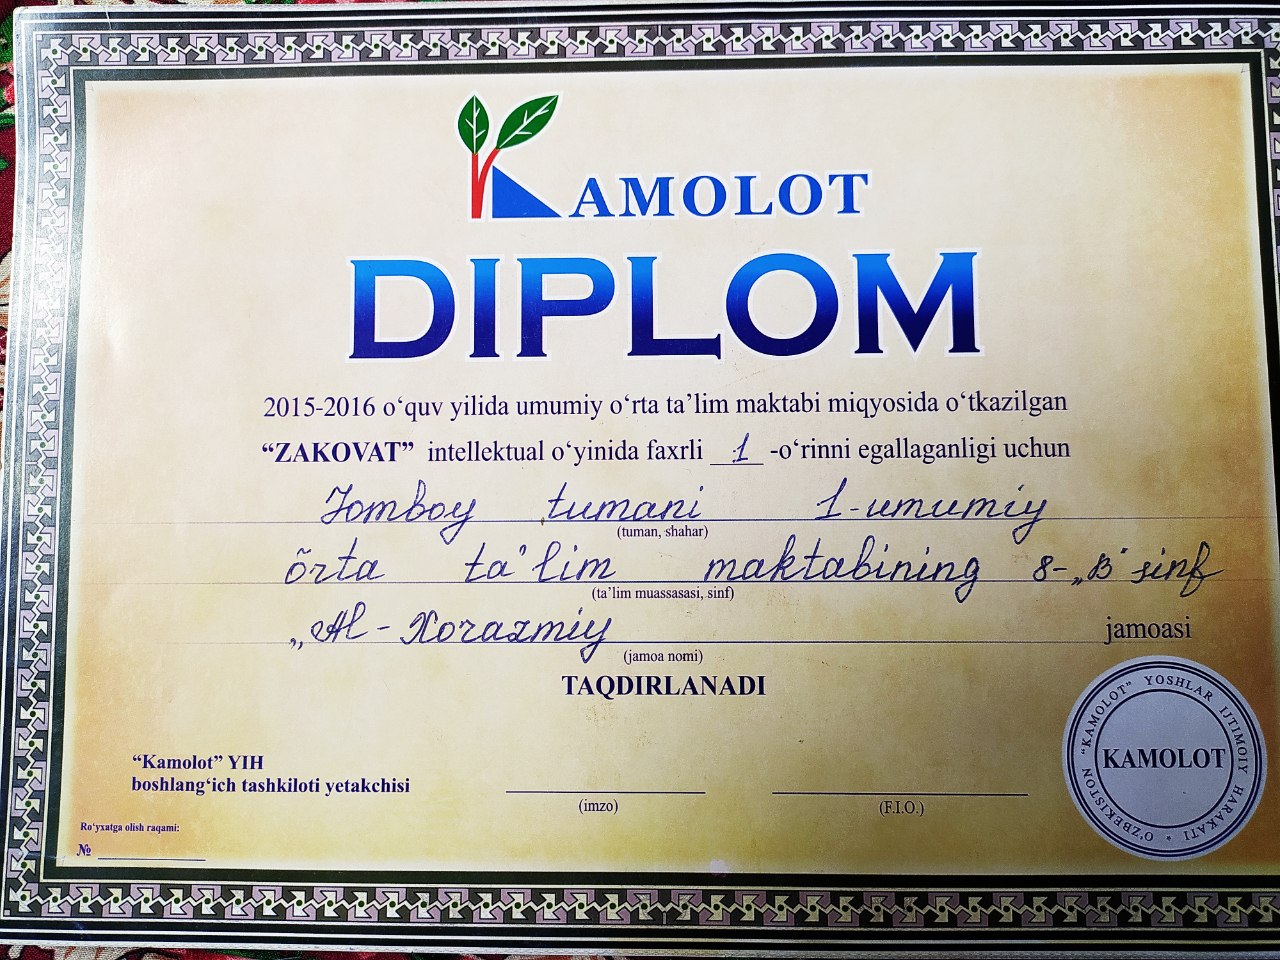 KAMOLOT
DIPLOM
2015-2016 o‘quv yilida umumiy o‘rta ta’lim maktabi miqyosida o‘tkazilgan
“ZAKOVAT” intellektual o‘yinida faxrli 1 -o‘rinni egallaganligi uchun
Jomboy tumani 1-umumiy
(tuman, shahar)
õrta ta’lim maktabining 8-„B“ sinf
(ta’lim muassasasi, sinf)
„Al-Xorazmiy jamoasi
(jamoa nomi)
TAQDIRLANADI
“Kamolot” YIH
boshlang‘ich tashkiloti yetakchisi
(imzo) (F.I.O.)
Ro‘yxatga olish raqami:
№
O‘ZBEKISTON “KAMOLOT” YOSHLAR IJTIMOIY HARAKATI *
KAMOLOT